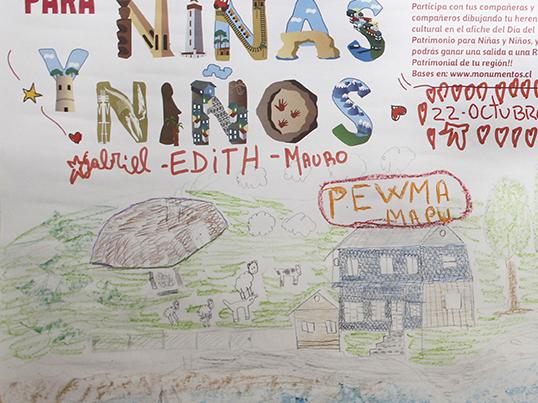 PARA NIÑAS
Y NIÑOS
Participa con tus compañeras y
compañeros dibujando tu heren
cultural en el afiche del Día del
Patrimonio para Niñas y Niños, y
podrás ganar una salida a una R
Patrimonial de tu región!!
Bases en: www.monumentos.cl
22-OCTUBR
Gabriel - EDITH - MAURO
PEWMA
MAPU